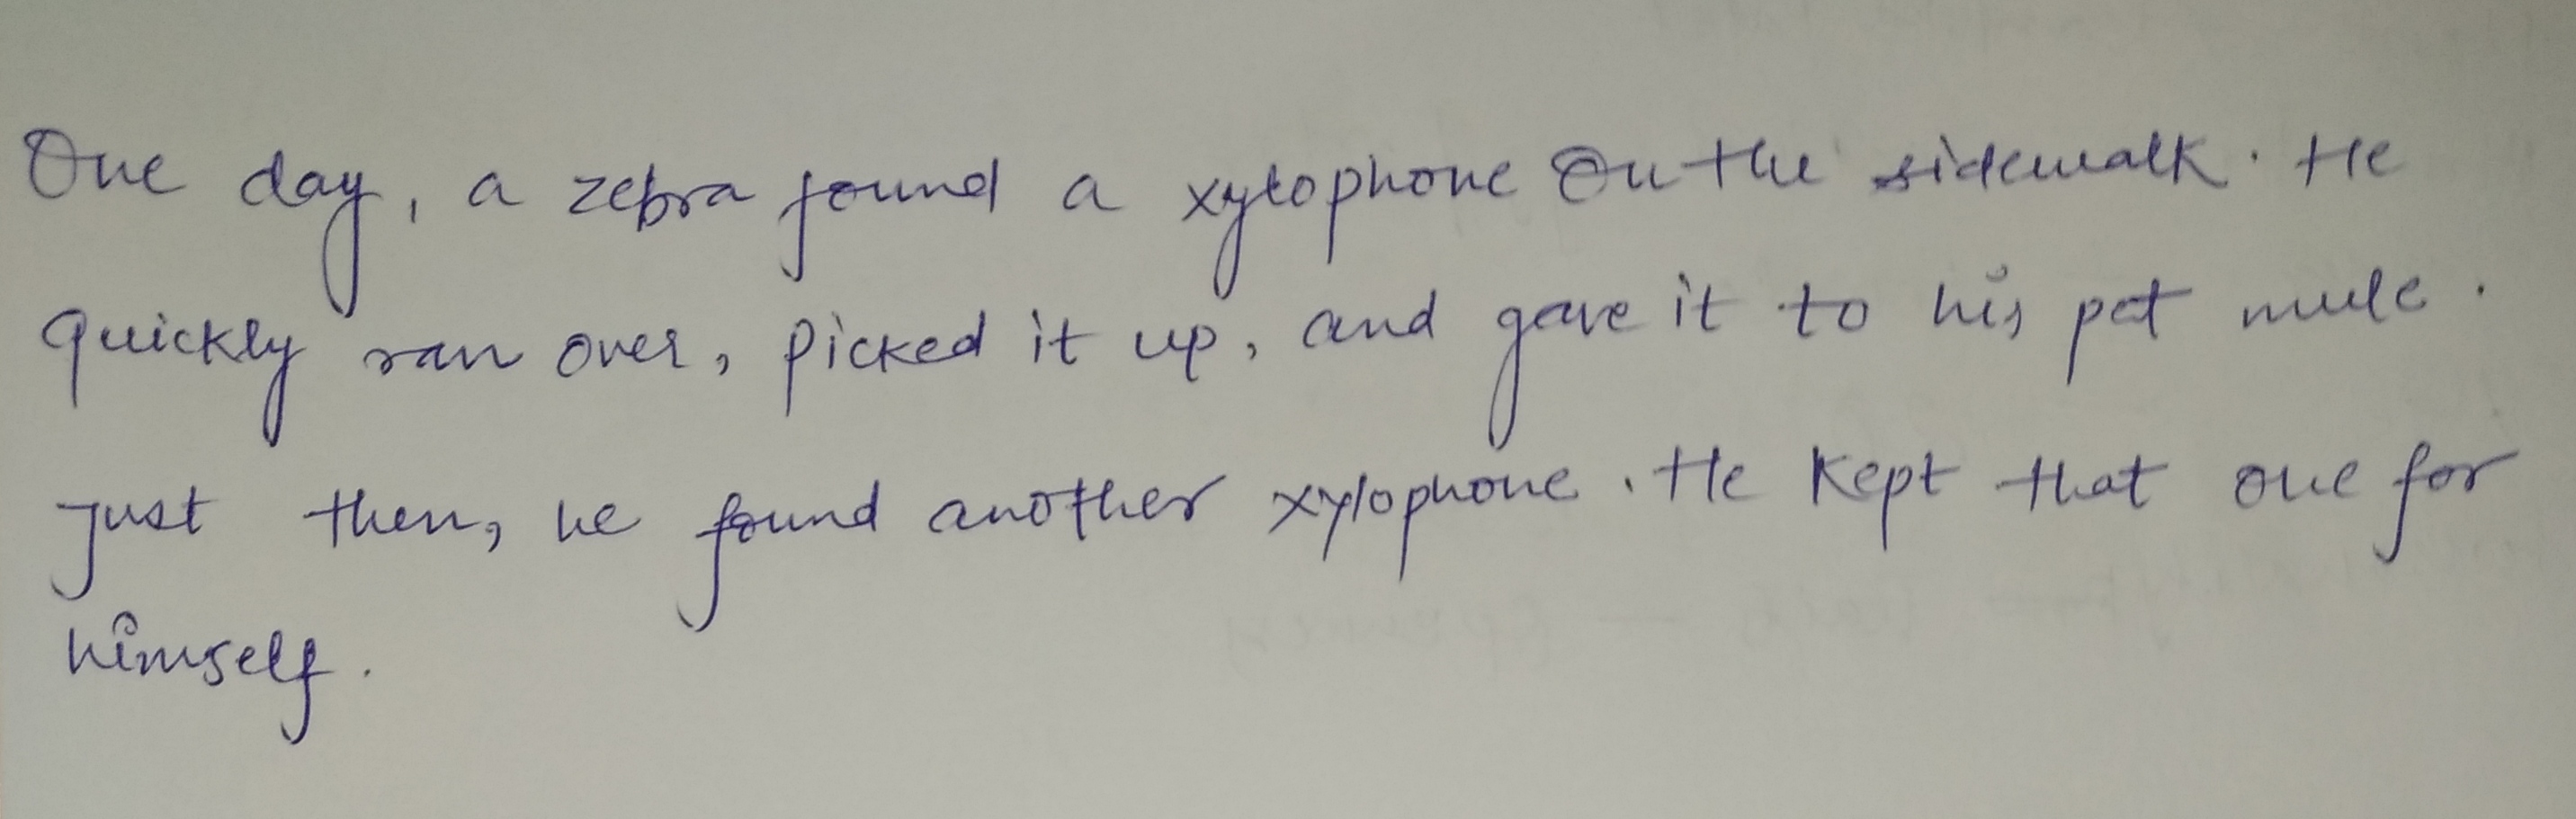 One day, a zebra found a xylophone on the sidewalk. He
quickly ran over, picked it up, and gave it to his pet mule.
Just then, he found another xylophone. He kept that one for
himself.